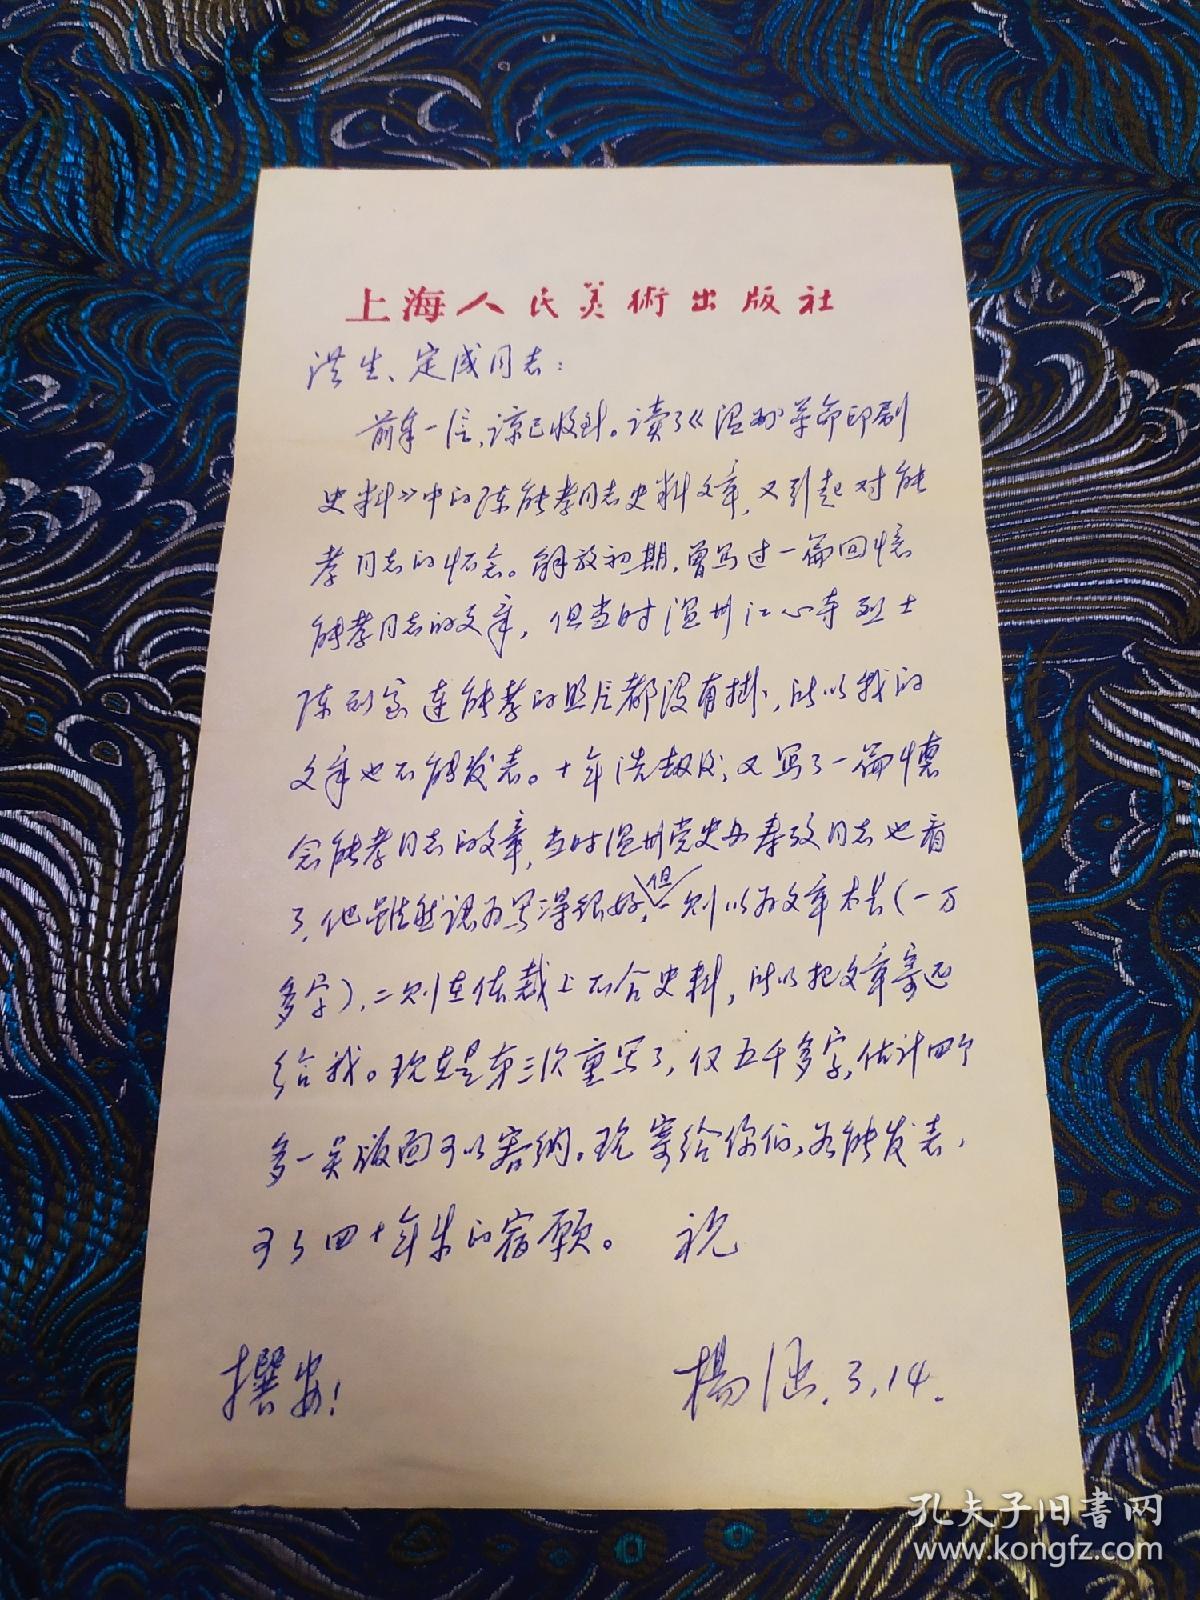 上海人民美術出版社
洪生、定成同志：
前奉一信，谅已收到。读了《温州革命印刷
史料》中的陈能孝同志史料文章，又引起对能
孝同志的怀念。解放初期，曾写过一篇回憶
能孝同志的文章，但当时温州江心寺烈士
陈列室連能孝的照片都没有掛，所以我的
文章也不能发表。十年浩劫后，又写了一篇懷
念能孝同志的文章，当时温州党史办 同志也看
了，他虽然認为写得很好，但一则以为文章太长（一万
多字），二则在体裁上不合史料，所以把文章寄还
给我。现在是第三次重写了，仅五千多字，估计四个
多一英版面可以容纳。现寄给你们，若能发表，
可了四十年来的宿願。 祝
撰安！
楊涵．3．14．
孔夫子旧書网
www.kongfz.com